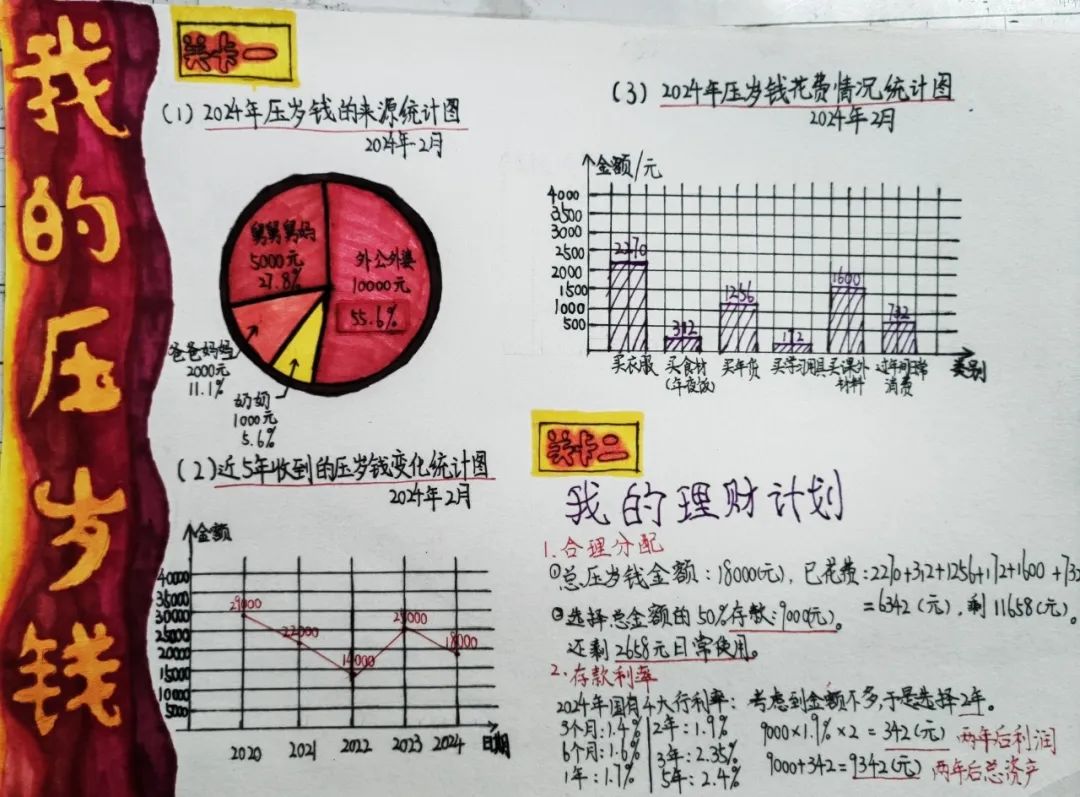 我的压岁钱
关卡一
(1) 2024年压岁钱的来源统计图
2024年2月
舅舅舅妈
5000元
27.8%
外公外婆
10000元
55.6%
爸爸妈妈
2000元
11.1%
奶奶
1000元
5.6%
(2) 近5年收到的压岁钱变化统计图
2024年2月
金额
40000
35000
30000
25000
20000
15000
10000
5000
29000
22000
14000
25000
18000
2020 2021 2022 2023 2024 日期
(3) 2024年压岁钱花费情况统计图
2024年2月
金额/元
4000
3500
3000
2500
2000
1500
1000
500
2270
312
1256
172
1600
732
买衣服 买食材 买年货 买学习用具 买课外 过年间日常 类别
(年夜饭) 材料 消费
关卡二
我的理财计划
1.合理分配
①总压岁钱金额:18000(元),已花费:2270+312+1256+172+1600+732
=6342(元),剩11658(元)。
②选择总金额的50%存款:9000(元)。
还剩2658元日常使用。
2.存款利率
2024年国有4大行利率:
3个月:1.4%
6个月:1.6%
1年:1.7%
2年:1.9%
3年:2.35%
5年:2.4%
考虑到金额不多,于是选择2年。
9000×1.9%×2=342(元) 两年后利润
9000+342=9342(元) 两年后总资产